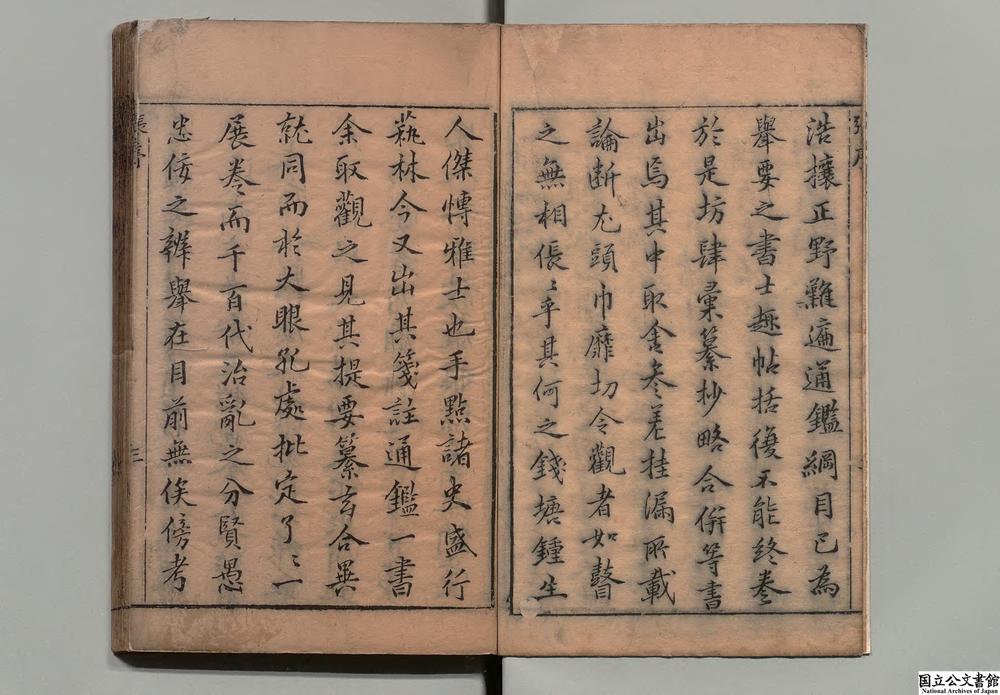 浩攘正野難遍通鑑綱目已為
舉要之書士趣帖括復不能終卷
於是坊肆彙纂抄略合併等書
出焉其中取舍參差挂漏所載
論斷尤頭巾靡切令觀者如瞽
之無相倀〻乎其何之錢塘鍾生
人傑博雅士也手點諸史盛行
蓺林今又出其箋註通鑑一書
余取觀之見其提要纂玄合異
就同而於大眼孔處批定了〻一
展卷而千百代治亂之分賢愚
忠佞之辨舉在目前無俟傍考
国立公文書館
National Archives of Japan